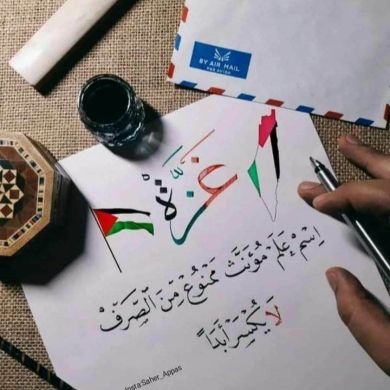 BY AIR MAIL
PAR AVION
غَزَّة
اِسْمُ عَلَمٍ مُؤَنَّثٍ مَمْنُوعٌ مِنَ الصَّرفْ
لَا يُكْسَرُ أَبَدًا
InstaSaher_Appas